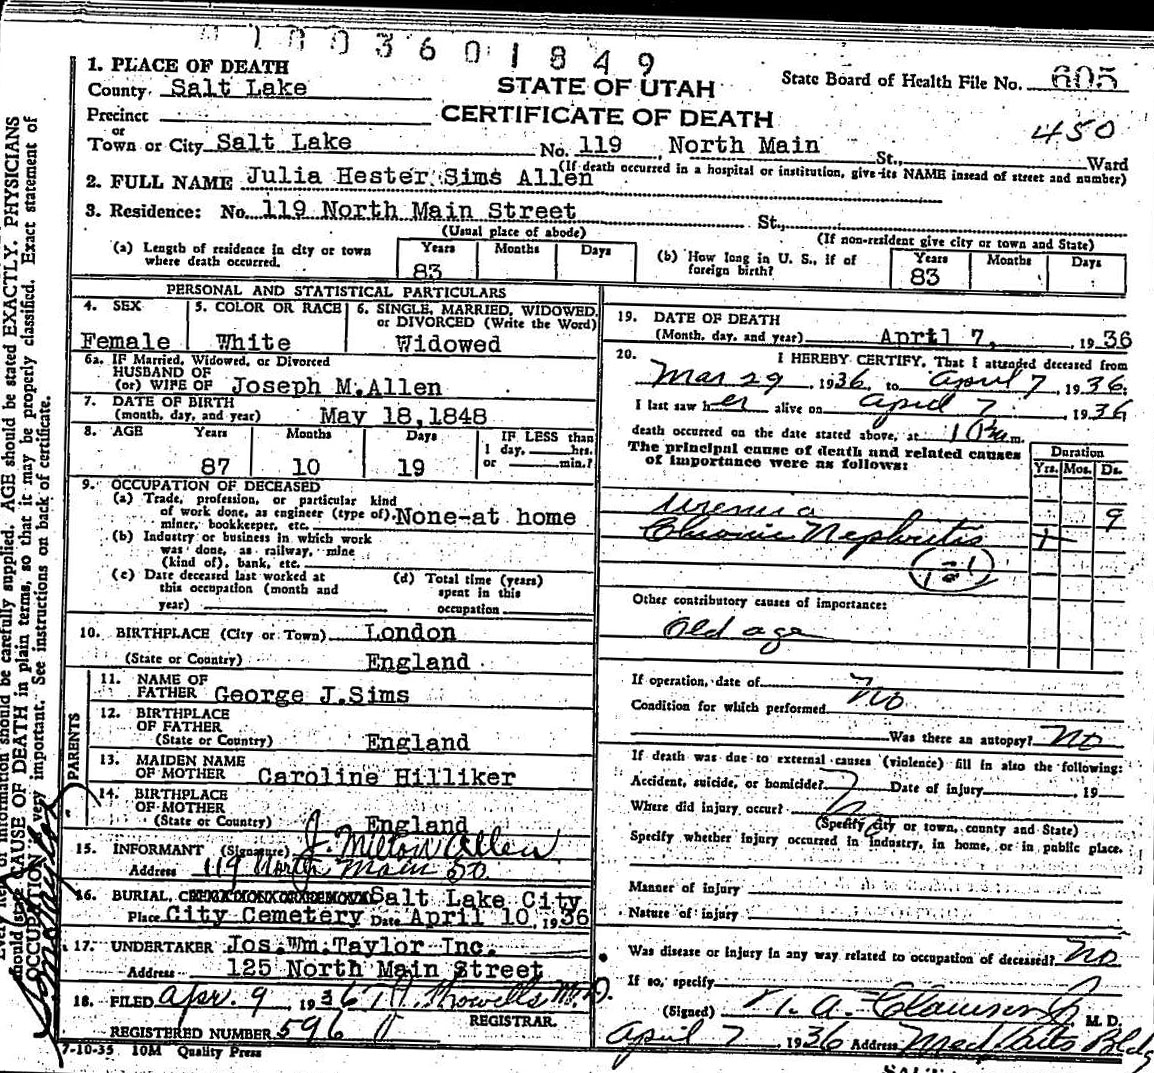 01003601849
1. PLACE OF DEATH
County Salt Lake
STATE OF UTAH
State Board of Health File No. 605
Precinct
CERTIFICATE OF DEATH
450
or
Town or City Salt Lake No. 119 North Main St., Ward
(If death occurred in a hospital or institution, give its NAME instead of street and number)
2. FULL NAME Julia Hester Sims Allen
3. Residence: No. 119 North Main Street St.,
(Usual place of abode) (If non-resident give city or town and State)
(a) Length of residence in city or town where death occurred. Years 83 Months Days
(b) How long in U. S., if of foreign birth? Years 83 Months Days
PERSONAL AND STATISTICAL PARTICULARS
4. SEX Female
5. COLOR OR RACE White
6. SINGLE, MARRIED, WIDOWED, or DIVORCED (Write the Word) Widowed
6a. IF Married, Widowed, or Divorced
HUSBAND OF
(or) WIFE OF Joseph M. Allen
7. DATE OF BIRTH
(month, day, and year) May 18, 1848
8. AGE Years 87 Months 10 Days 19
IF LESS than
1 day, hrs.
or min.?
9. OCCUPATION OF DECEASED
(a) Trade, profession, or particular kind
of work done, as engineer (type of), None-at home
miner, bookkeeper, etc.
(b) Industry or business in which work
was done, as railway, mine
(kind of), bank, etc.
(c) Date deceased last worked at
this occupation (month and
year)
(d) Total time (years)
spent in this
occupation
10. BIRTHPLACE (City or Town) London
(State or Country) England
PARENTS
11. NAME OF
FATHER George J. Sims
12. BIRTHPLACE
OF FATHER
(State or Country) England
13. MAIDEN NAME
OF MOTHER Caroline Hilliker
14. BIRTHPLACE
OF MOTHER
(State or Country) England
15. INFORMANT (Signature) J. Milton Allen
Address 119 North Main St.
16. BURIAL, Salt Lake City
Place City Cemetery Date April 10, 1936
17. UNDERTAKER Jos. Wm. Taylor Inc.
Address 125 North Main Street
18. FILED Apr. 9, 1936
REGISTRAR.
REGISTERED NUMBER 596
7-10-35 10M Quality Press
19. DATE OF DEATH
(Month, day, and year) April 7, 1936
20. I HEREBY CERTIFY, That I attended deceased from
Mar 29, 1936, to April 7, 1936.
I last saw her alive on April 7, 1936
death occurred on the date stated above, at m.
The principal cause of death and related causes
of importance were as follows:
Duration
Yrs. Mos. Ds.
Uremia 9
Chronic Nephritis +
131
Other contributory causes of importance:
Old age
If operation, date of No
Condition for which performed
Was there an autopsy? No
If death was due to external causes (violence) fill in also the following:
Accident, suicide, or homicide? Date of injury , 19
Where did injury occur? No
(Specify city or town, county and State)
Specify whether injury occurred in industry, in home, or in public place.
Manner of injury
Nature of injury
Was disease or injury in any way related to occupation of deceased? No
If so, specify
(Signed) M. D.
April 7 1936 Address Bldg
should be carefully supplied. AGE should be stated EXACTLY. PHYSICIANS
CAUSE OF DEATH in plain terms, so that it may be properly classified. Exact statement of
OCCUPATION very important. See instructions on back of certificate.